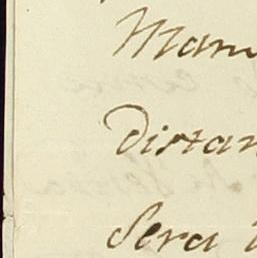 Mam
distan
Sera